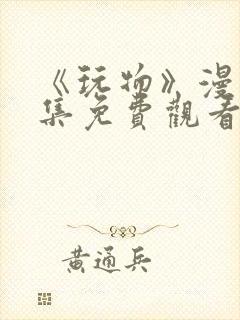 《玩物》漫
集免費觀看
黃通兵